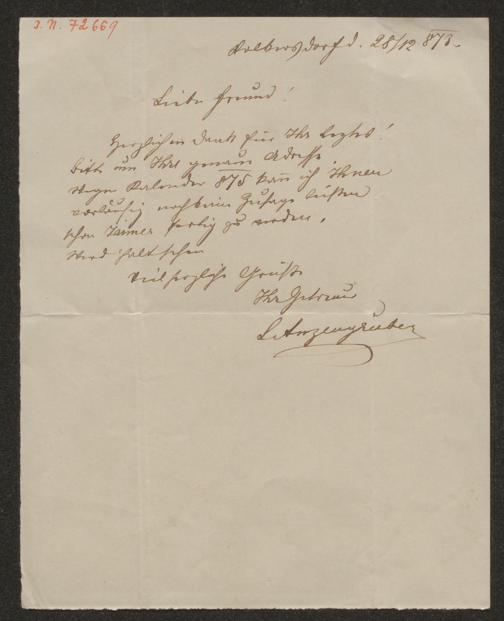 J. N. 72669
Kolbersdorf d. 28/12 873.
Liebe Freund!
Herzlichen Dank für Ihr letztes!
bitte um Ihre genaue Adresse.
Wegen Kalender 875 kann ich Ihnen
vorläufig noch keine Zusage
schon immer fertig zu werden.
Werd halt sehen
Viel herzliche Grüße
Ihr Getreuer
LAnzengruber